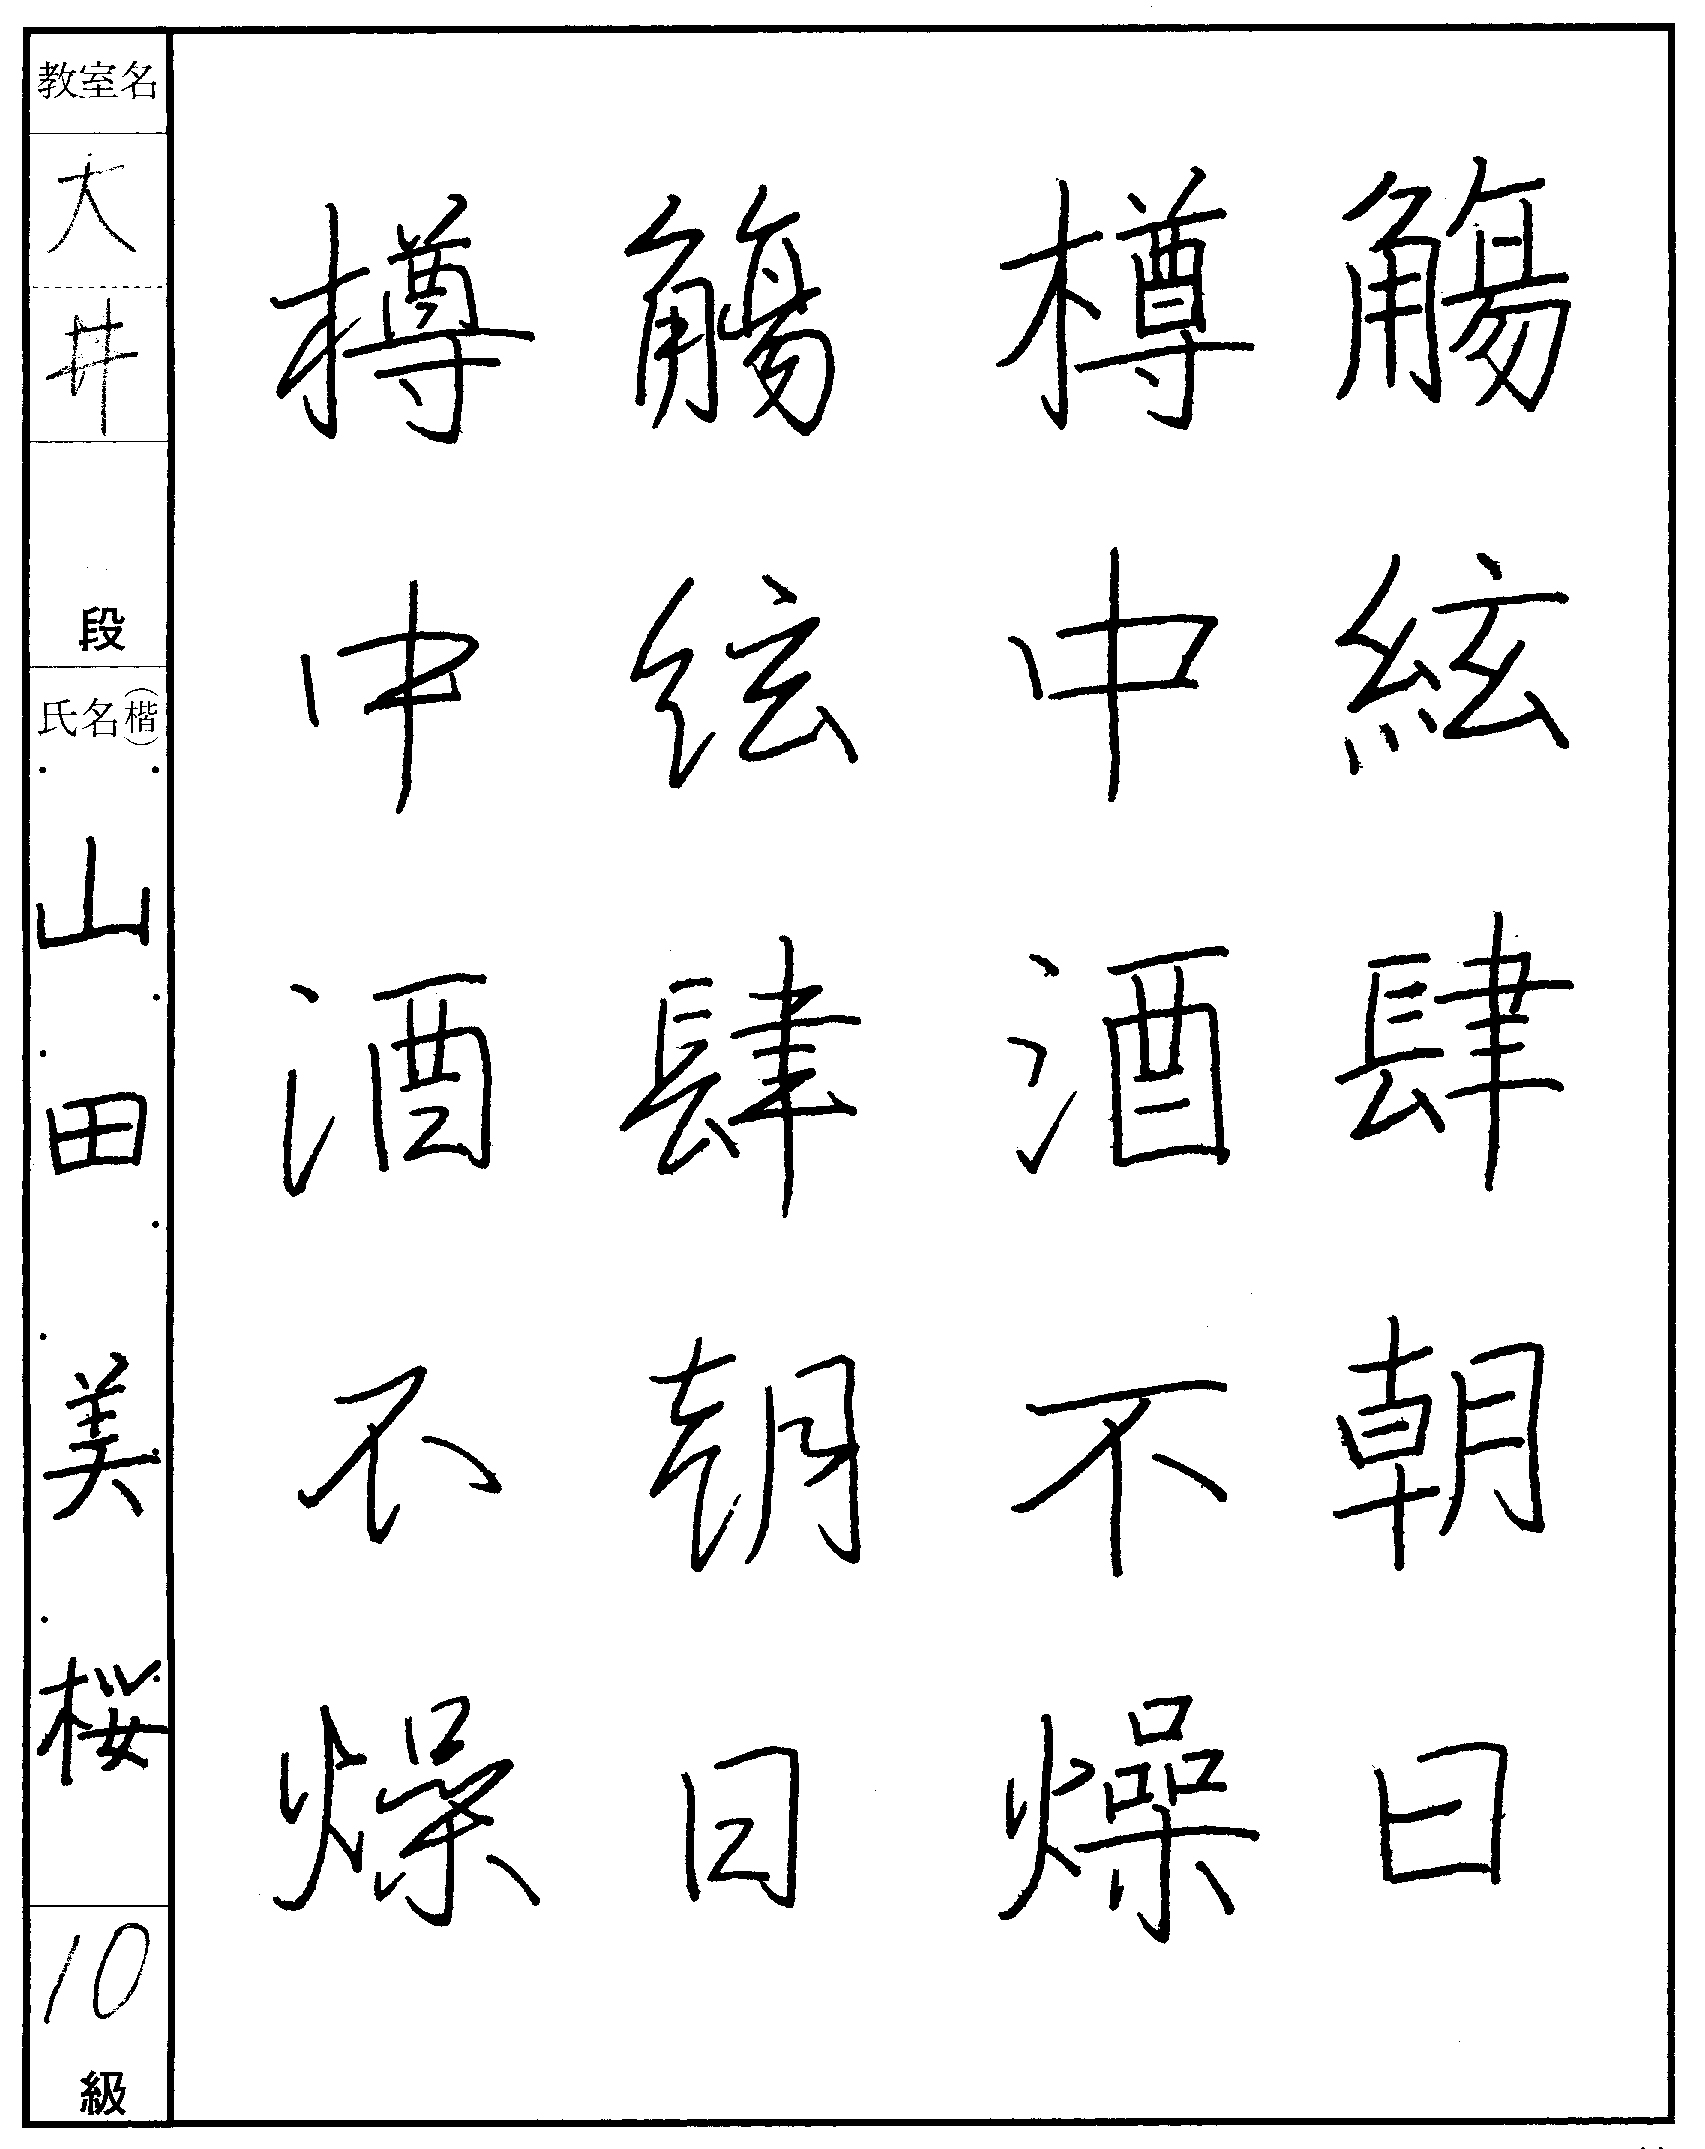 觴絃肆朝日
樽中酒不燥
觴絃肆朝日
樽中酒不燥
教室名
大井
段
氏名(楷)
山田美桜
10
級